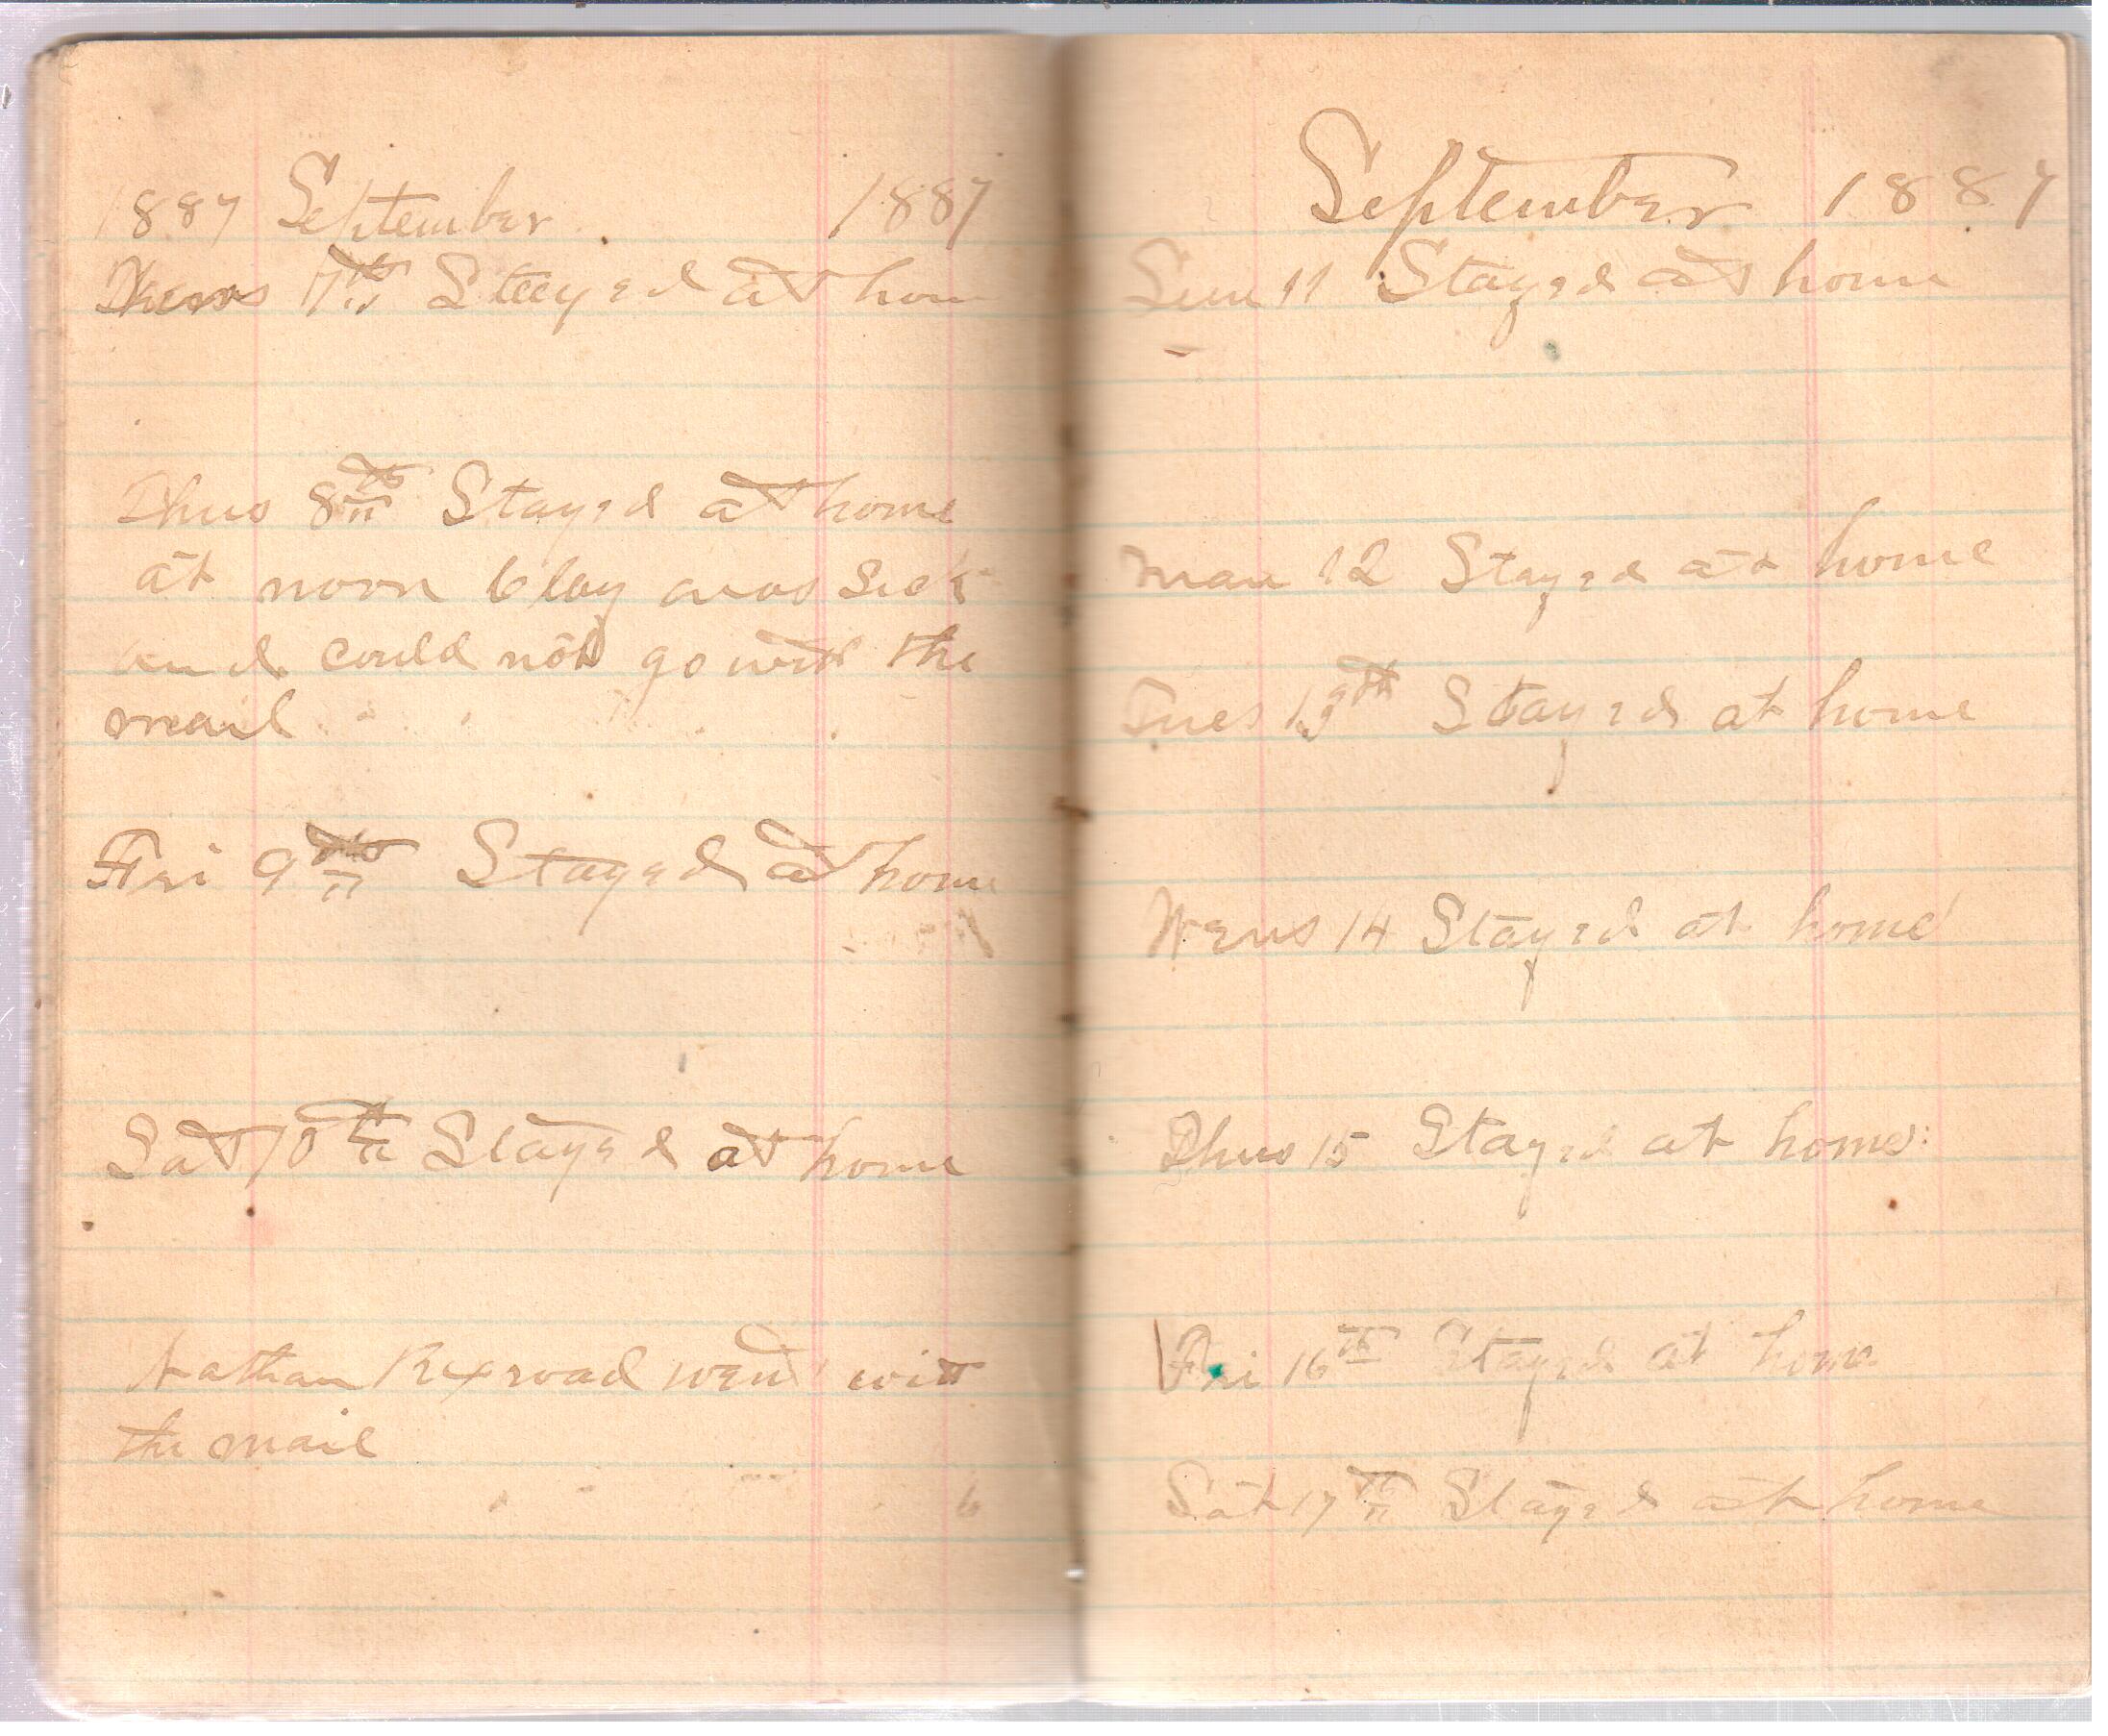 1887 September 1887
7th Stayed at hom
Thus 8th Stayed at home
at noon Clay was Sick
and could not go with the
mail
Fri 9th Stayed at home
Sat 10th Stayed at home
Nathan Rexroad went with
the mail
September 1887
Sun 11 Stayed at home
Mon 12 Stayed at home
Tues 13th Stayed at home
Wens 14 Stayed at home
Thus 15 Stayed at home
Fri 16th Stayed at home
Sat 17th Stayed at home